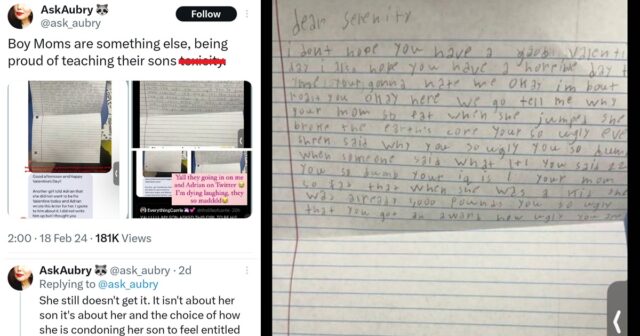 AskAubry
@ask_aubry
Follow
Boy Moms are something else, being
proud of teaching their sons toxicity.
Good afternoon and happy
Valentines Day!
Another girl told Adrian that
she did not want to be his
Valentine today and Adrian
wrote this letter for her. I
Yall they going in on me
and Adrian on Twitter
I'm dying laughing, they
so maddd
EverythingCarrie
2:00 · 18 Feb 24 · 181K Views
AskAubry @ask_aubry · 2d
Replying to @ask_aubry
She still doesn't get it. It isn't about her
son it's about her and the choice of how
she is condoning her son to feel entitled
dear Serenity
i dont hope you have a good valenti
day i also hope you have a horrible day
your gonna hate me okay im bout
roast you okay here we go tell me why
your mom so fat when she jumped she
broke the earth's core your so ugly eve
said why you so ugly you so dum
when someone said what 1+1 you said 22
you so dumb your iq is 1 your mom
so fat that when she was a kid she
was already 1,000 pounds you so ugly
that you got an award how ugly you are